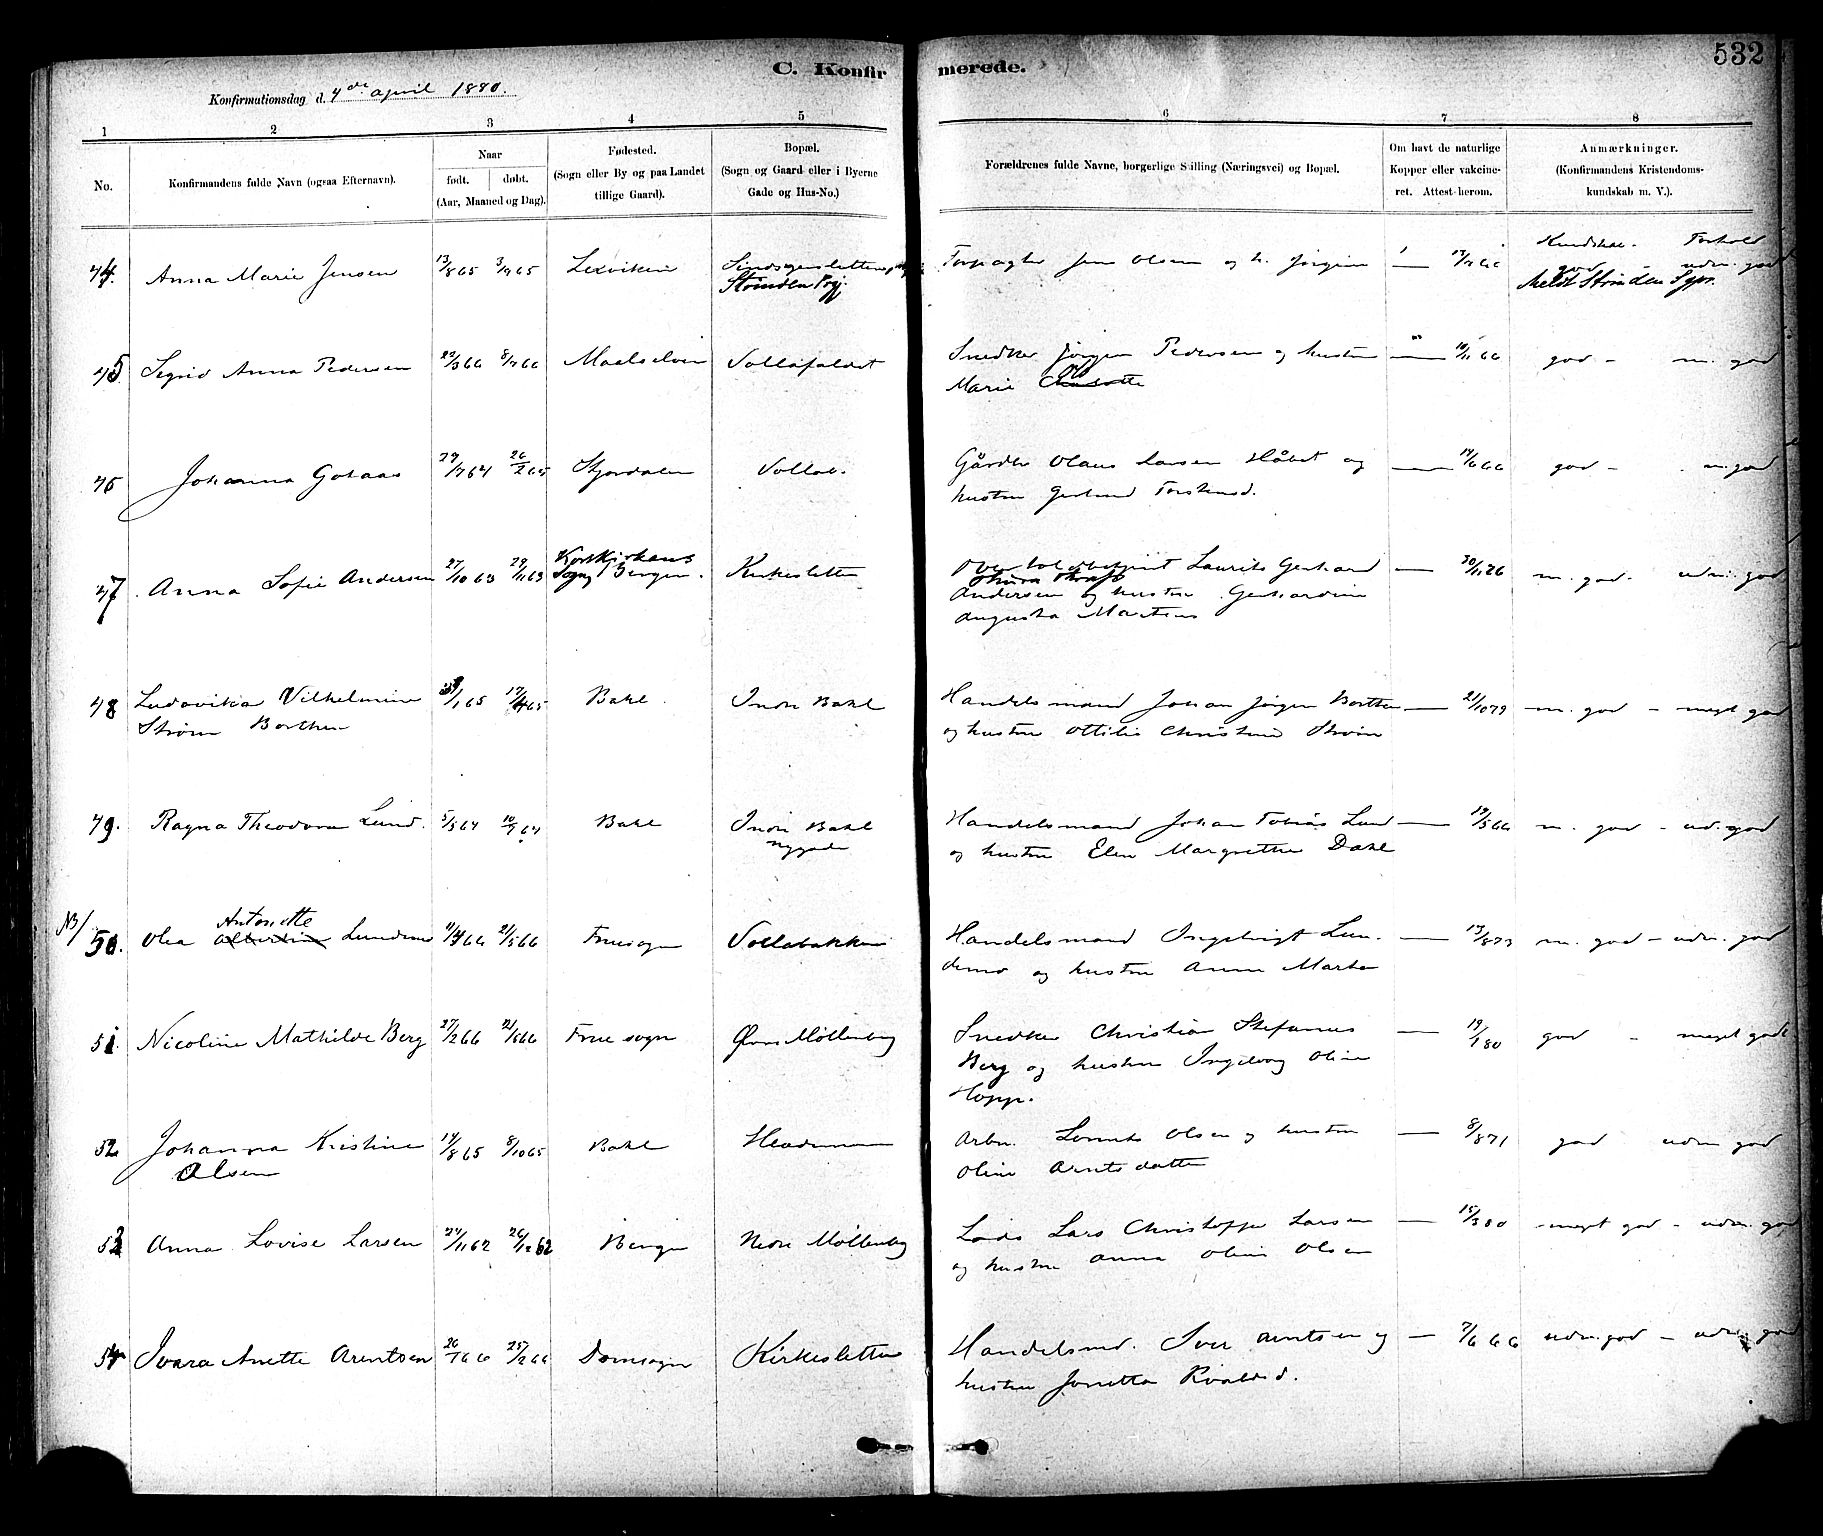 532
C. Konfirmerede.
Konfirmationsdag d. 4de april 1880.
1 2 3 4 5 6 7 8
No. Konfirmandens fulde Navn (ogsaa Efternavn). Naar født. døbt. (Aar, Maaned og Dag). Fødested. (Sogn eller By og paa Landet tillige Gaard). Bopæl. (Sogn og Gaard eller i Byerne Gade og Hus-No.) Forældrenes fulde Navne, borgerlige Stilling (Næringsvei) og Bopæl. Om havt de naturlige Kopper eller vakcineret. Attest herom. Anmærkninger. (Konfirmandens Kristendomskundskab m. V.).
Kundskab. Forhold
44. Anna Marie Jensen 13/8 65 3/9 65 Lexviken Jens Olsen og h. Jørgine god - udm. god
Meldt Strinden Spr.
45. Sigrid Anna Pedersen 23/3 66 8/7 66 Maalselven Vollafaldet Snedker Jørgen Pedersen og hustru god - m. god
Marie
46 Johanna Gotaas 29/7 64 26/2 65 Stjørdalen Vollab. Gårdbr Olaus Larsen og 19/6 66 god - m. god
hustru
47. Anna Sofie Andersen 27/10 63 29/11 63 Kors Kirkens Sogn Bergen. Kirkesletten Laurits Gerhard m. god - udm. god
Andersen og hustru Gerhardine
Augusta Martens
48 Ludovika Vilhelmine 65 17/4 65 Bakl. Indre Bakl Handelsmand Johan Jørgen Borthen 21/10 79 m. god - meget god
Strøm Borthen og hustru Ottilie Christine Strøm
49. Ragna Theodora Lund. 5/3 64 10/7 64 Bakl Indre Bakl Handelsmand Johan Tobias Lund 19/5 66 m. god - ud. god
Nygade og hustru Elen Margrethe Dahl
NB/ 50. Olea Antonette Albertine Lundemo 11/4 66 21/5 66 Fruesogn Vollabakken Handelsmand Ingebrigt Lun- 13/8 73 m. god - udm. god
demo og hustru Anne Marta
51. Nicoline Mathilde Berg 27/2 66 21/5 66 Frue sogn Øvre Møllenberg Snedker Christian Stefanus 19/1 80 god - meget godt
Berg og hustru Ingeborg Oline
Hopp.
52 Johanna Kristine 14/8 65 8/10 65 Bakl Arbm. Lorents Olsen og hustru 8/8 71 god udm god
Olsen Oline Arntsdatter
53 Anna Lovise Larsen 24/11 62 26/12 62 Bergen Nedre Møllenberg Lods Lars Christoffer Larsen 15/3 80 meget god - udm. god
og hustru Anna Oline Olsen
54 Ivara Anette Arentsen 26/1 66 25/2 66 Domsogn Kirkesletten Handelsmd. Iver Arntsen og 7/6 66 udm. god - udm. god
hustru Jonetta